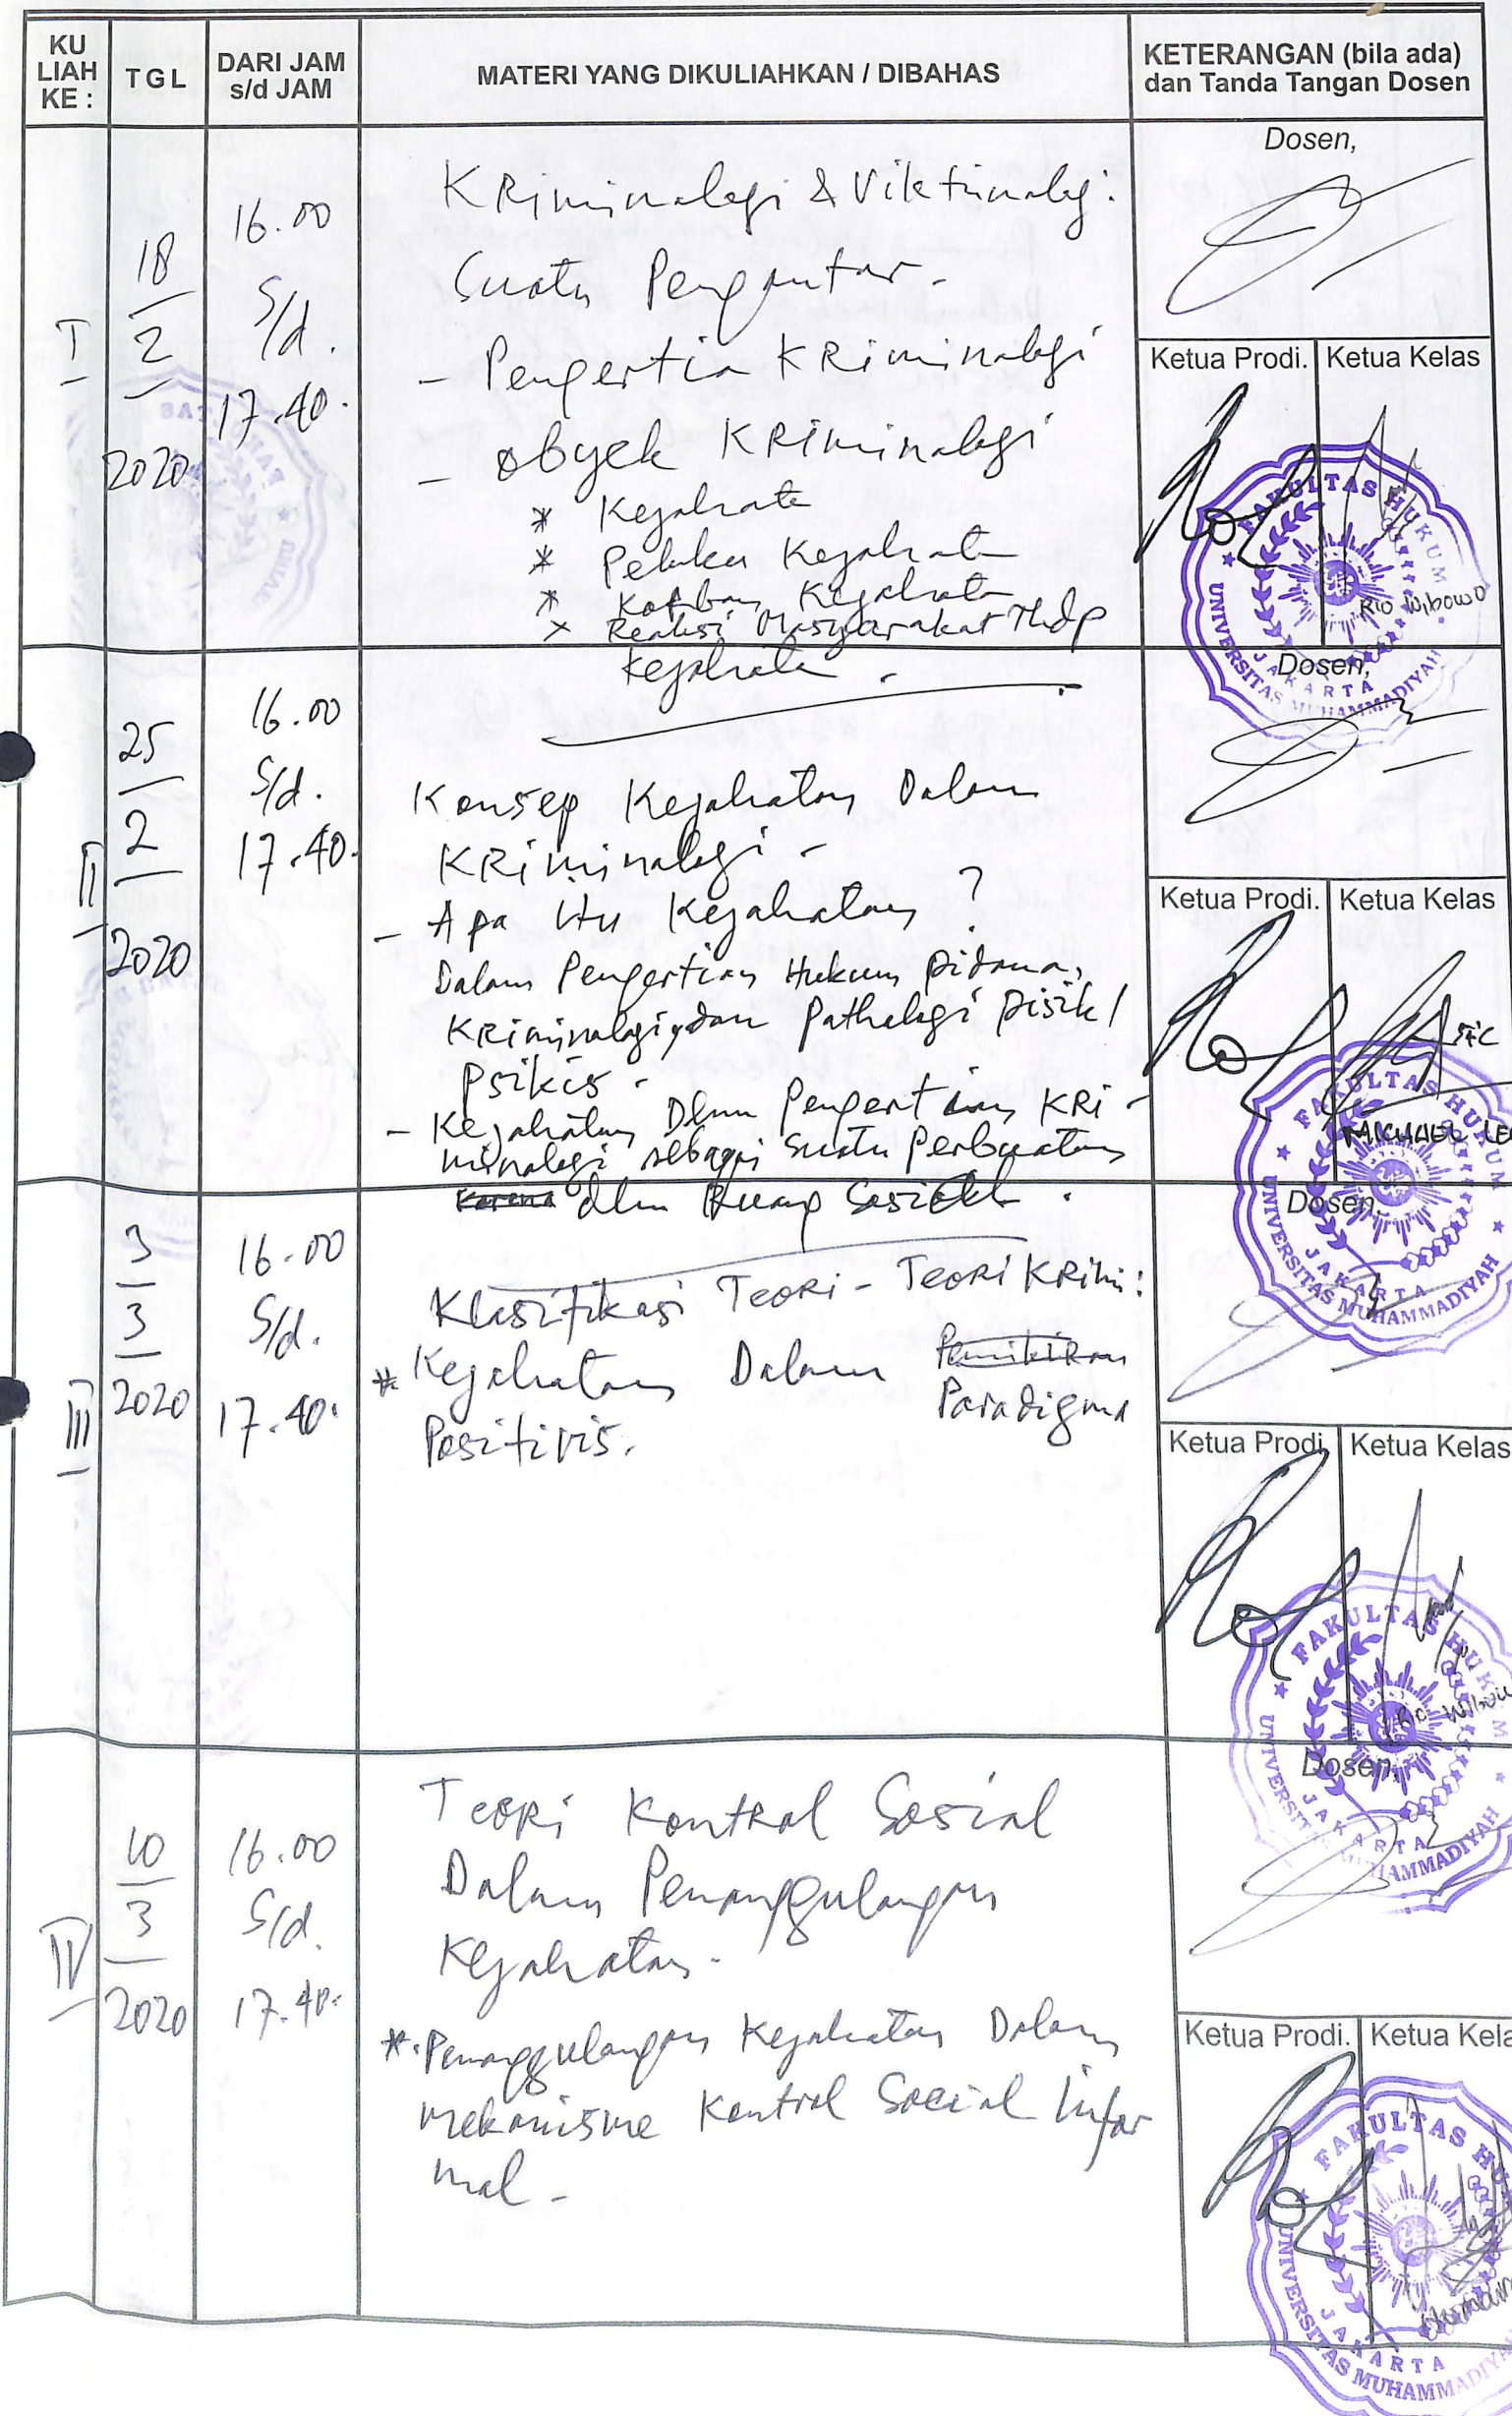 KU LIAH KE :
TGL
DARI JAM s/d JAM
MATERI YANG DIKULIAHKAN / DIBAHAS
KETERANGAN (bila ada) dan Tanda Tangan Dosen
I
18
2
2020
16.00
S/d.
17.40.
Kriminologi & Viktimologi:
Suatu Pengantar -
- Pengertia Kriminologi
- Obyek Kriminologi
* Kejahata
* Pelaku Kejahata
* Korban Kejahata
* Reaksi Masyarakat Thdp
Kejahata.
Dosen,
Ketua Prodi.
Ketua Kelas
FAKULTAS HUKUM
UNIVERSITAS MUHAMMADIYAH
JAKARTA
Rio Wibowo
II
25
2
2020
16.00
S/d.
17.40.
Konsep Kejahatan Dalam
Kriminologi -
- Apa itu Kejahatan ?
Dalam Pengertian Hukum pidana,
Kriminologi, dan Pathologi pisik/
psikis -
- Kejahatan Dlm Pengertian Kri-
minologi sebagai suatu Perbuatan
karena dlm Ruang Sosial.
Dosen,
Ketua Prodi.
Ketua Kelas
FAKULTAS HUKUM
UNIVERSITAS MUHAMMADIYAH
JAKARTA
III
3
3
2020
16.00
S/d.
17.40.
Klasifikasi Teori - Teori Krimi:
* Kejahatan Dalam Pemikiran
Paradigma
Positivis.
Dosen,
Ketua Prodi
Ketua Kelas
FAKULTAS HUKUM
UNIVERSITAS MUHAMMADIYAH
JAKARTA
IV
10
3
2020
16.00
S/d.
17.40.
Teori Kontrol Sosial
Dalam Penanggulangan
Kejahatan.
* Penanggulangan Kejahatan Dalam
mekanisme Kontrol Social Infor
mal -
Dosen,
Ketua Prodi.
Ketua Kela
FAKULTAS HU
UNIVERSITAS MUHAMMADIYA
JAKARTA